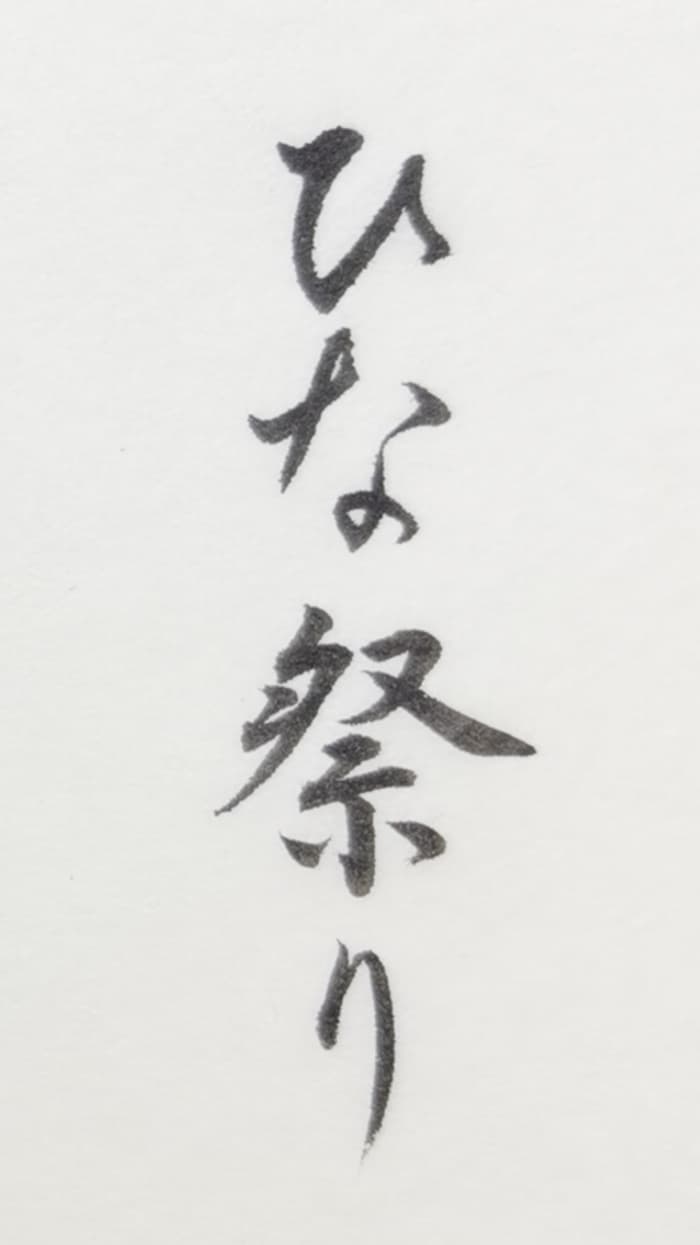 ひな祭り